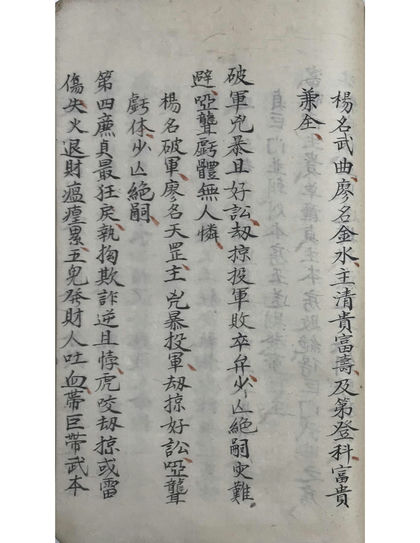 楊名武曲廖名金水主清貴富壽及第登科富貴
兼全
破軍兇暴且好訟刼掠投軍敗卒弁少亾絕嗣更難
避啞聾虧體無人憐
楊名破軍廖名天罡主兇暴投軍刼掠好訟啞聾
虧体少亾絕嗣
第四亷貞最狂戾執拘欺詐逆且悖虎咬刼掠或雷
傷失火退財瘟㾮累丑兒發財人吐血帶巨帶武本